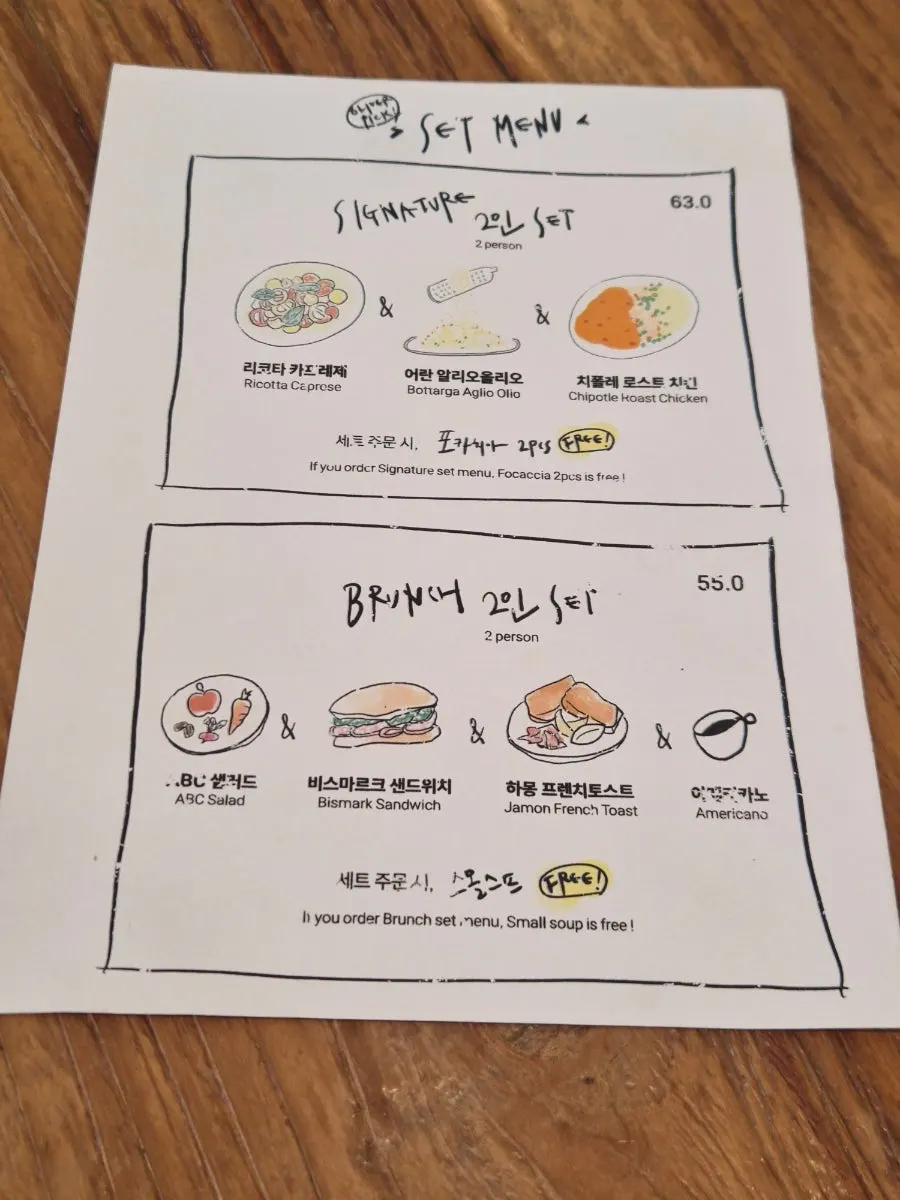 PICK!
SET MENU
SIGNATURE 2인 SET
63.0
2 person
&
&
리코타 카프레제
Ricotta Caprese
어란 알리오올리오
Bottarga Aglio Olio
치폴레 로스트 치킨
Chipotle Roast Chicken
세트 주문 시, 포카치아 2pcs FREE!
If you order Signature set menu, Focaccia 2pcs is free !
BRUNCH 2인 SET
55.0
2 person
&
&
&
ABC 샐러드
ABC Salad
비스마르크 샌드위치
Bismark Sandwich
하몽 프렌치토스트
Jamon French Toast
아메리카노
Americano
세트 주문 시, 스몰스프 FREE!
If you order Brunch set menu, Small soup is free !